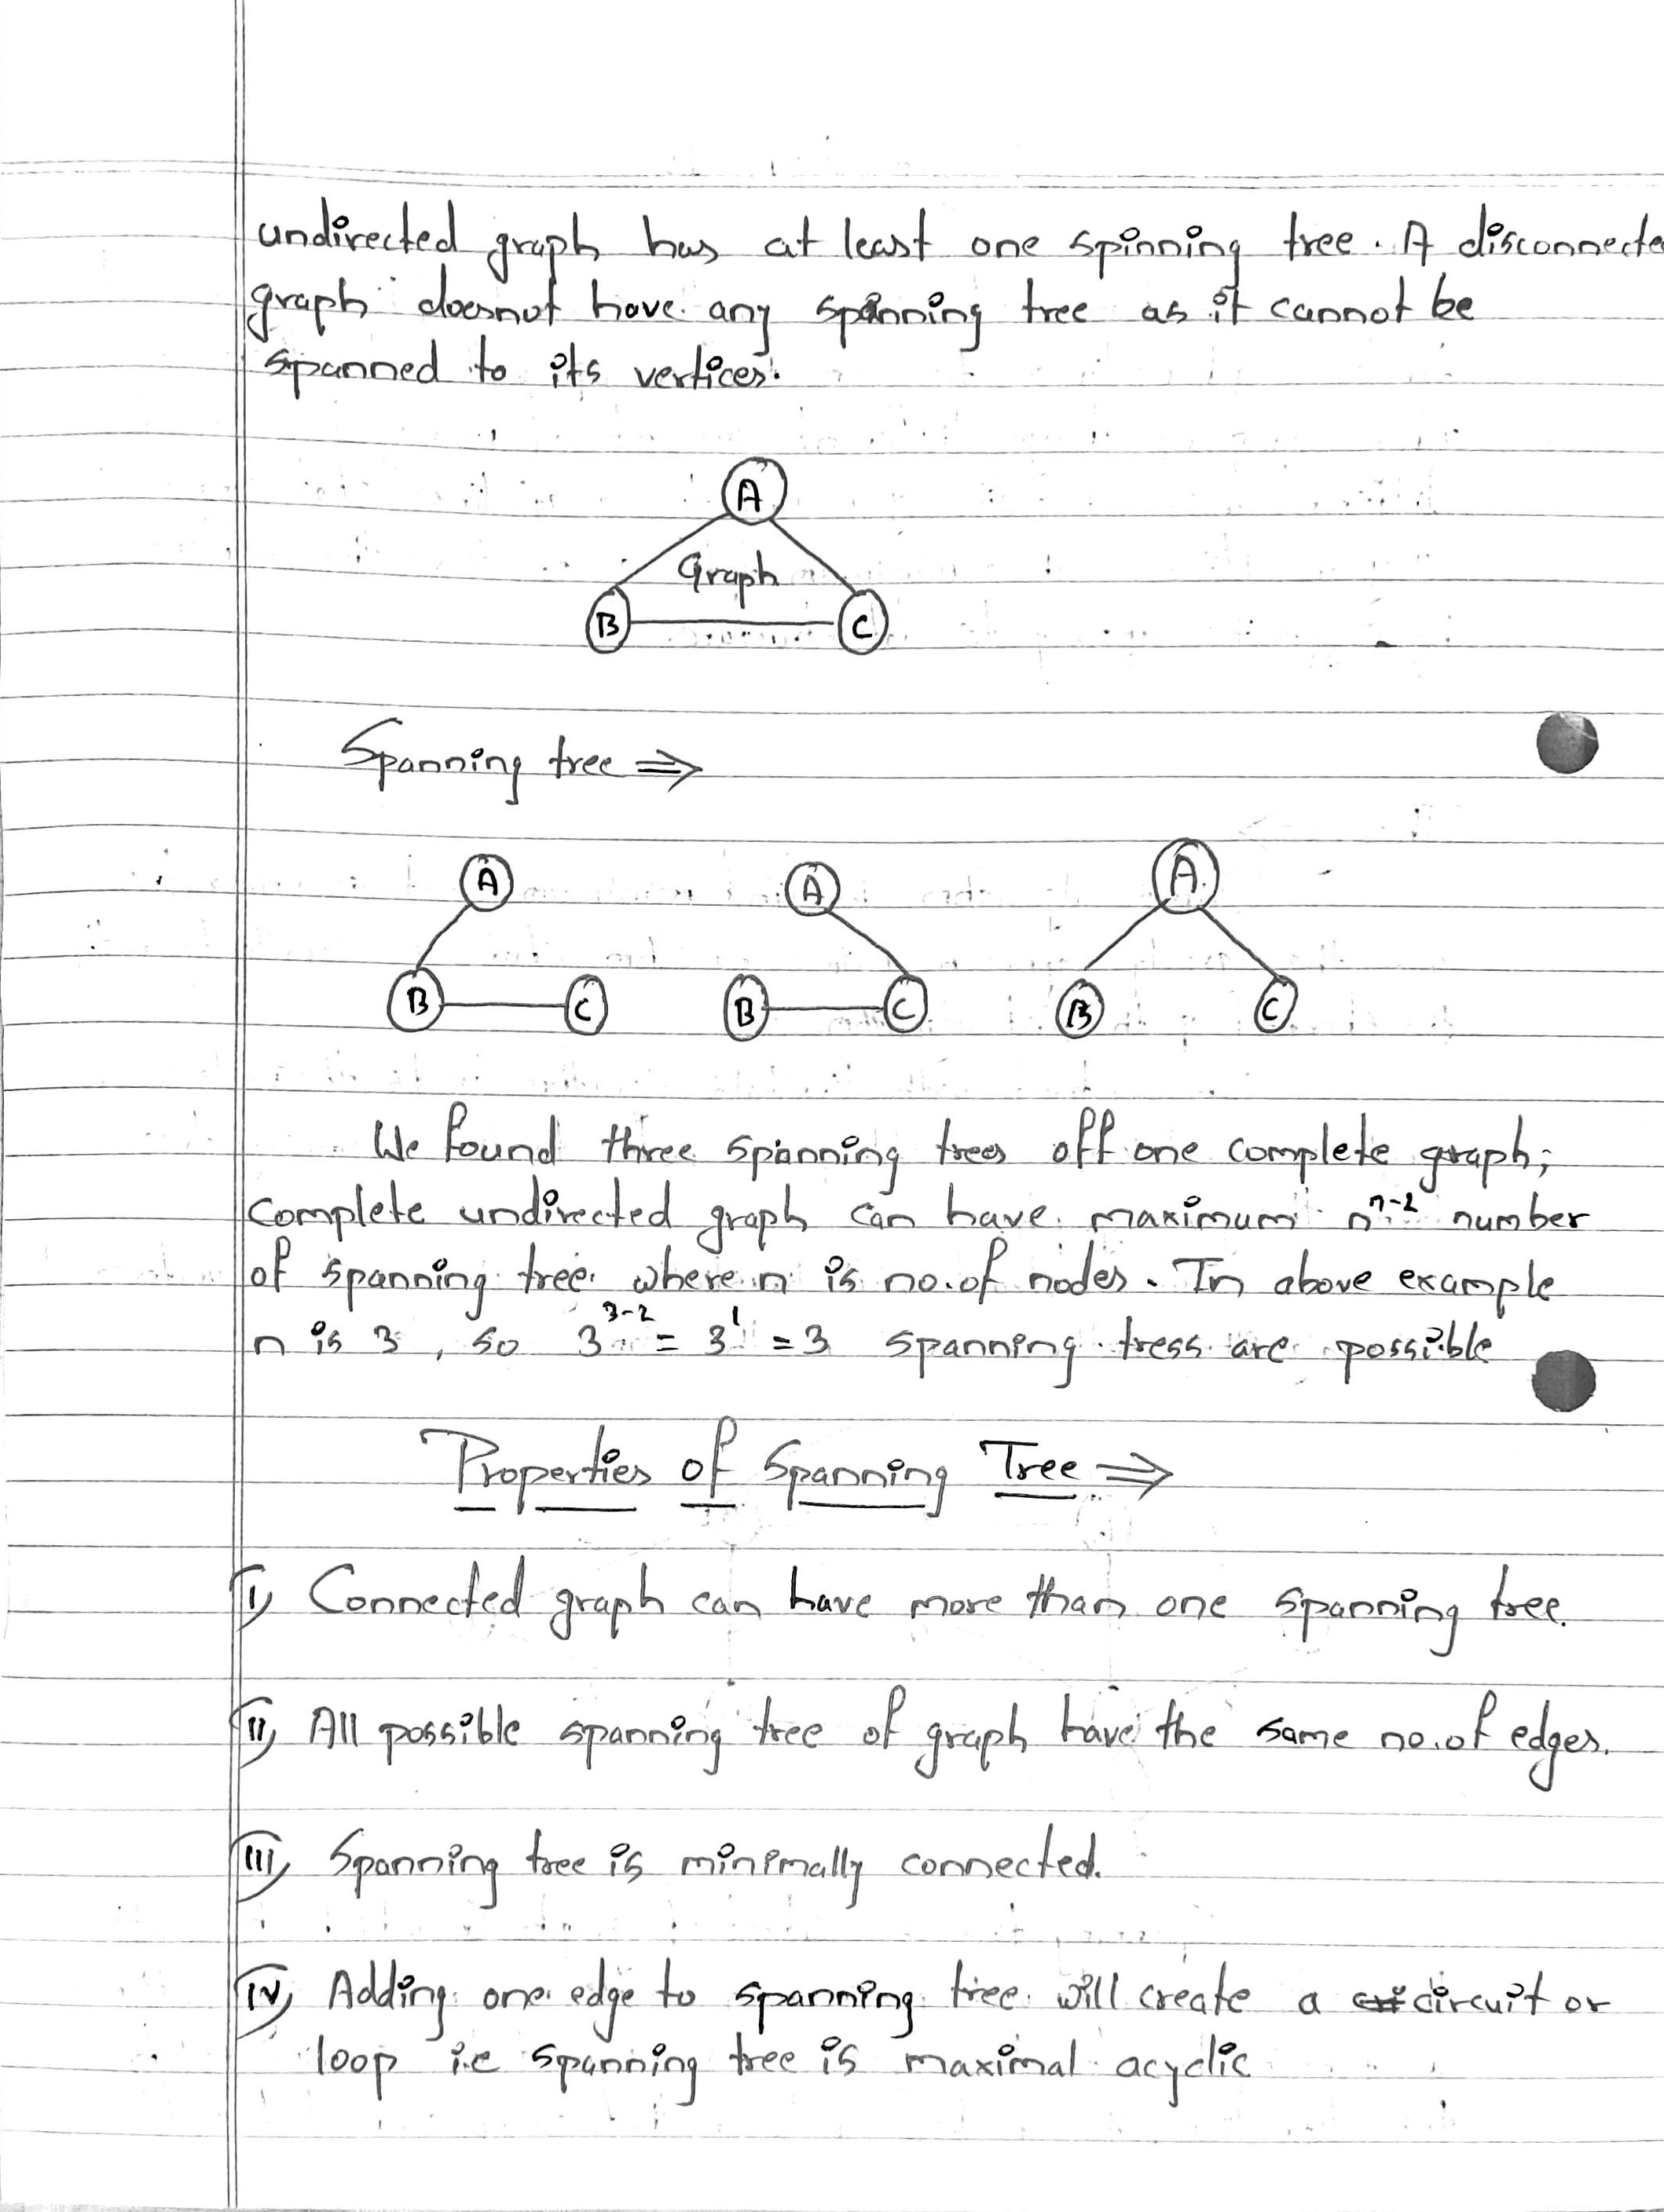 undirected graph has at least one spinning tree. A disconnecte
graph doesnot have any spanning tree as it cannot be
spanned to its vertices.
A
Graph
B C
Spanning tree ⇒
A A A
B C B C B C
We found three spinning trees off one complete graph;
complete undirected graph can have maximum n^{n-2} number
of spanning tree where n is no. of nodes. In above example
n is 3, so 3^{3-2} = 3^1 = 3 spanning tress are possible
Properties of Spanning Tree ⇒
i) Connected graph can have more than one spanning tree.
ii) All possible spanning tree of graph have the same no. of edges.
iii) Spanning tree is minimally connected.
iv) Adding one edge to spanning tree will create a circuit or
loop i.e spanning tree is maximal acyclic